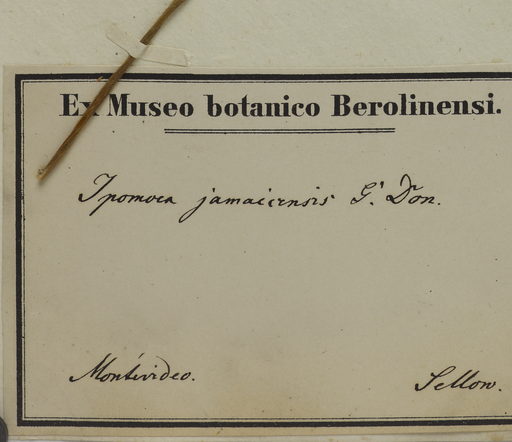 Ex Museo botanico Berolinensi.
Ipomoea jamaicensis G. Don.
Montevideo.
Sellow.